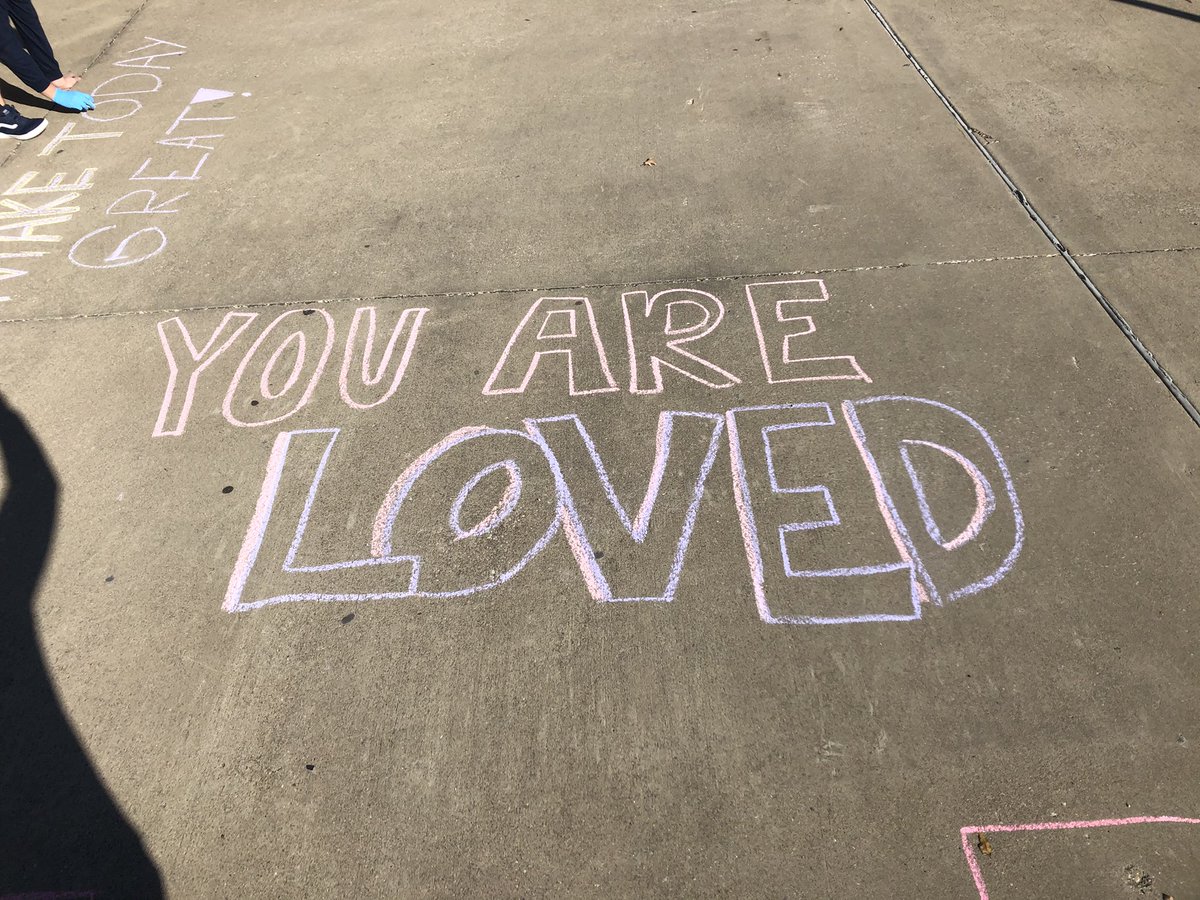 MAKE TODAY
GREAT!
YOU ARE
LOVED